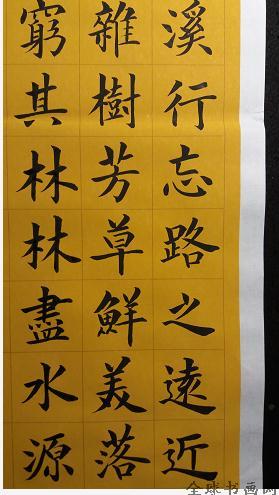 溪行忘路之遠近
雜樹芳草鮮美落
窮其林林盡水源
全球书画网